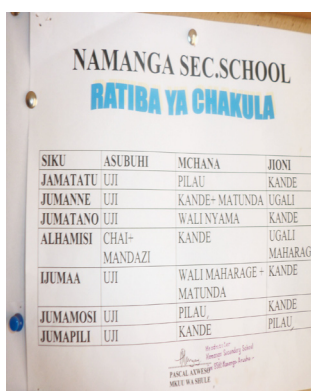 NAMANGA SEC.SCHOOL
RATIBA YA CHAKULA
SIKU ASUBUHI MCHANA JIONI
JAMATATU UJI PILAU KANDE
JUMANNE UJI KANDE+ MATUNDA UGALI
JUMATANO UJI WALI NYAMA KANDE
ALHAMISI CHAI+ KANDE UGALI
MANDAZI MAHARAG
IJUMAA UJI WALI MAHARAGE + KANDE
MATUNDA
JUMAMOSI UJI PILAU KANDE
JUMAPILI UJI KANDE PILAU
PASCAL AXWESO
MKUU WA SHULE